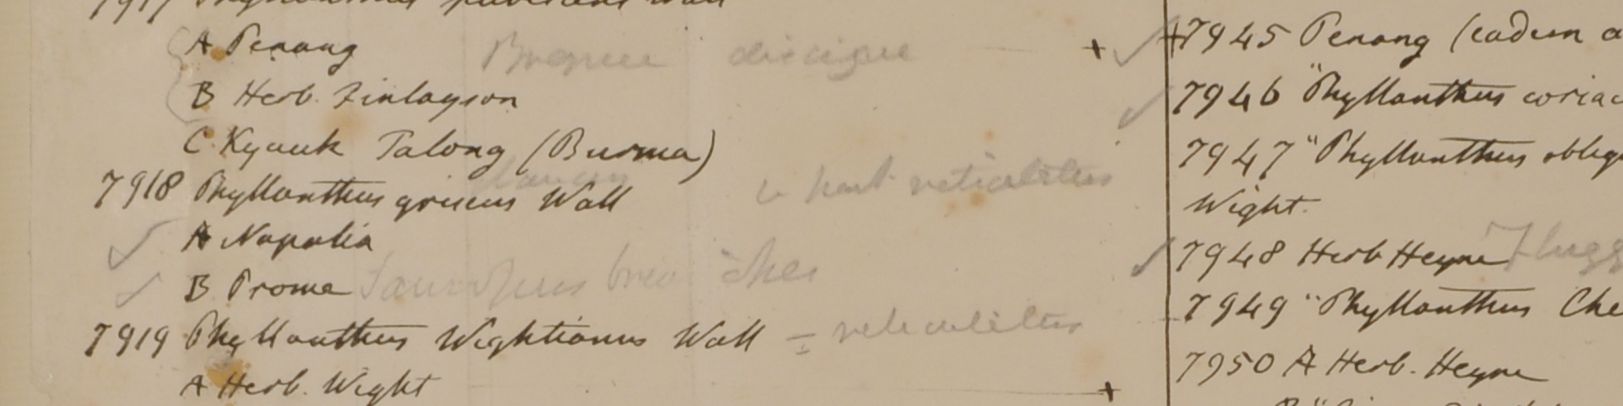 7917 Phyllanthus pubescens Wall
A Penang
B Herb. Finlayson
C Kyauk Talong (Burma)
7918 Phyllanthus griseus Wall
A Napalia
B Prome
7919 Phyllanthus Wightianus Wall = reticulatus
A Herb. Wight
7945 Penang (eadem a
7946 "Phyllanthus coriac
7947 "Phyllanthus obliq
Wight.
7948 Herb Heyne Flugg
7949 "Phyllanthus Che
7950 A Herb. Heyne